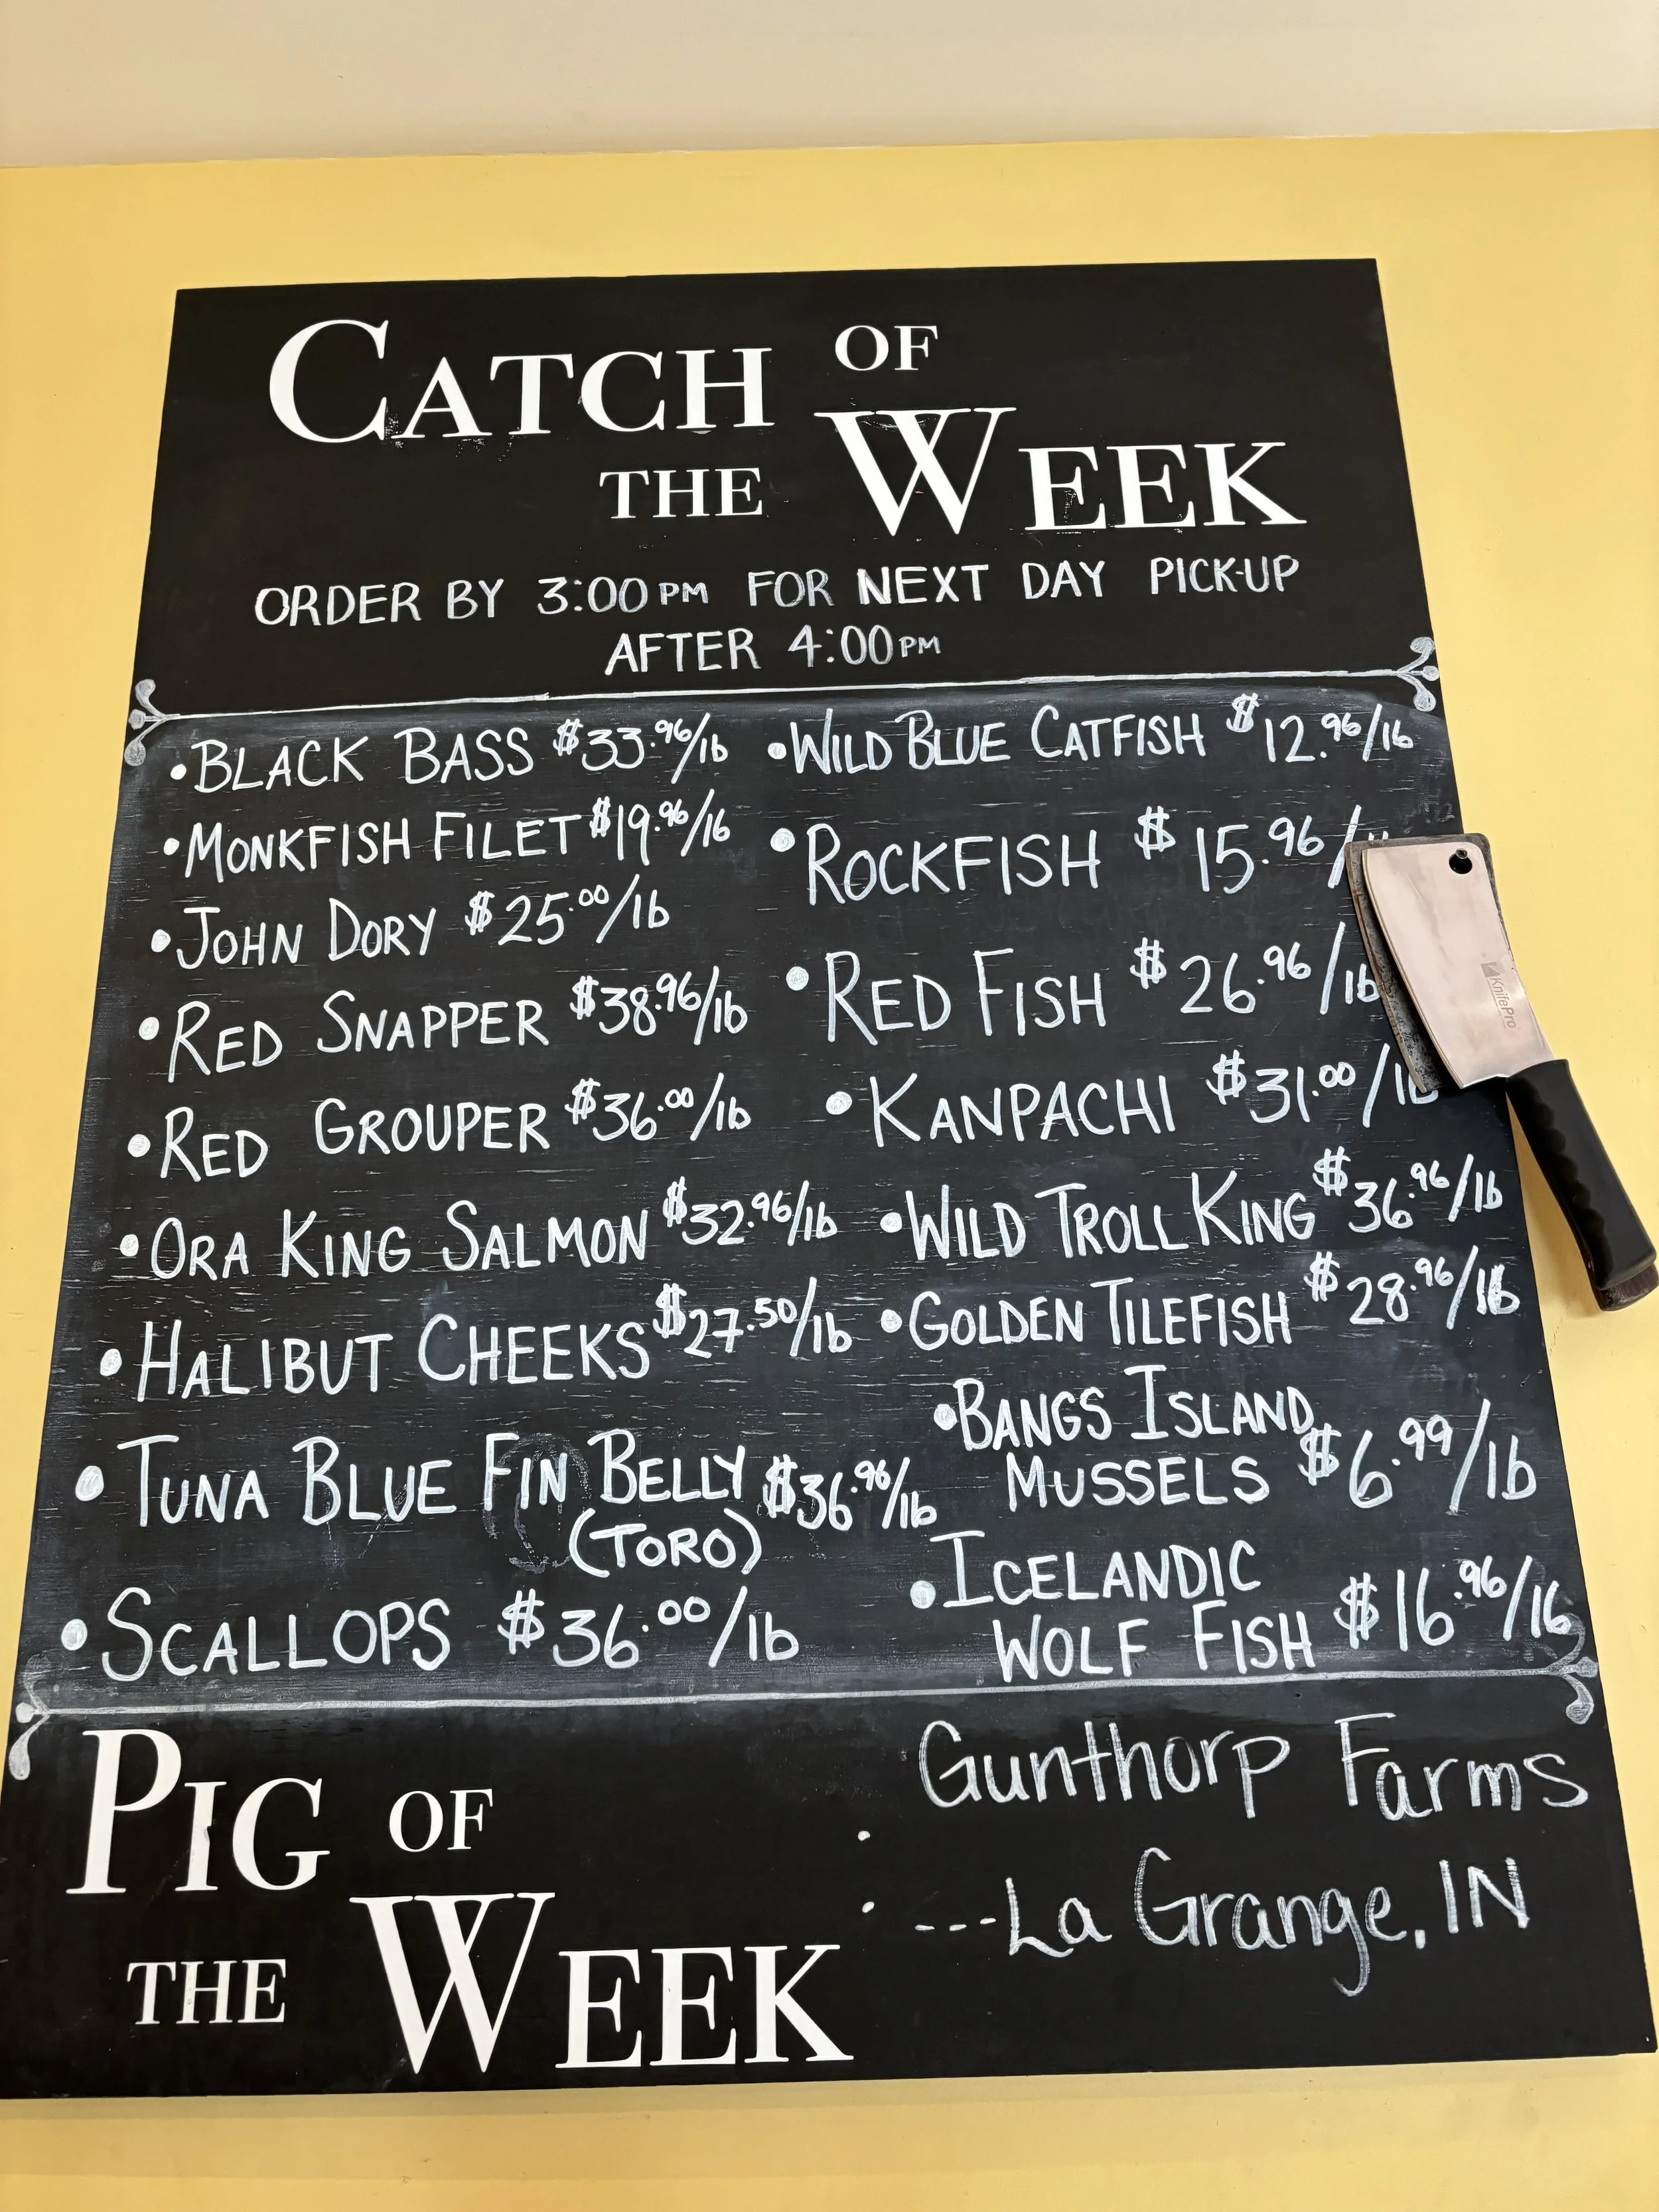 CATCH OF
THE WEEK
ORDER BY 3:00PM FOR NEXT DAY PICK-UP
AFTER 4:00PM
• BLACK BASS $33.96/lb
• MONKFISH FILET $19.96/lb
• JOHN DORY $25.00/lb
• RED SNAPPER $38.96/lb
• RED GROUPER $36.00/lb
• ORA KING SALMON $32.96/lb
• HALIBUT CHEEKS $27.50/lb
• TUNA BLUE FIN BELLY $36.96/lb
(TORO)
• SCALLOPS $36.00/lb
• WILD BLUE CATFISH $12.96/lb
• ROCKFISH $15.96/
• RED FISH $26.96/lb
• KANPACHI $31.00/lb
• WILD TROLL KING $36.96/lb
• GOLDEN TILEFISH $28.96/lb
• BANGS ISLAND
MUSSELS $6.99/lb
• ICELANDIC
WOLF FISH $16.96/lb
KnifePro
PIG OF
THE WEEK
: Gunthorp Farms
---La Grange, IN